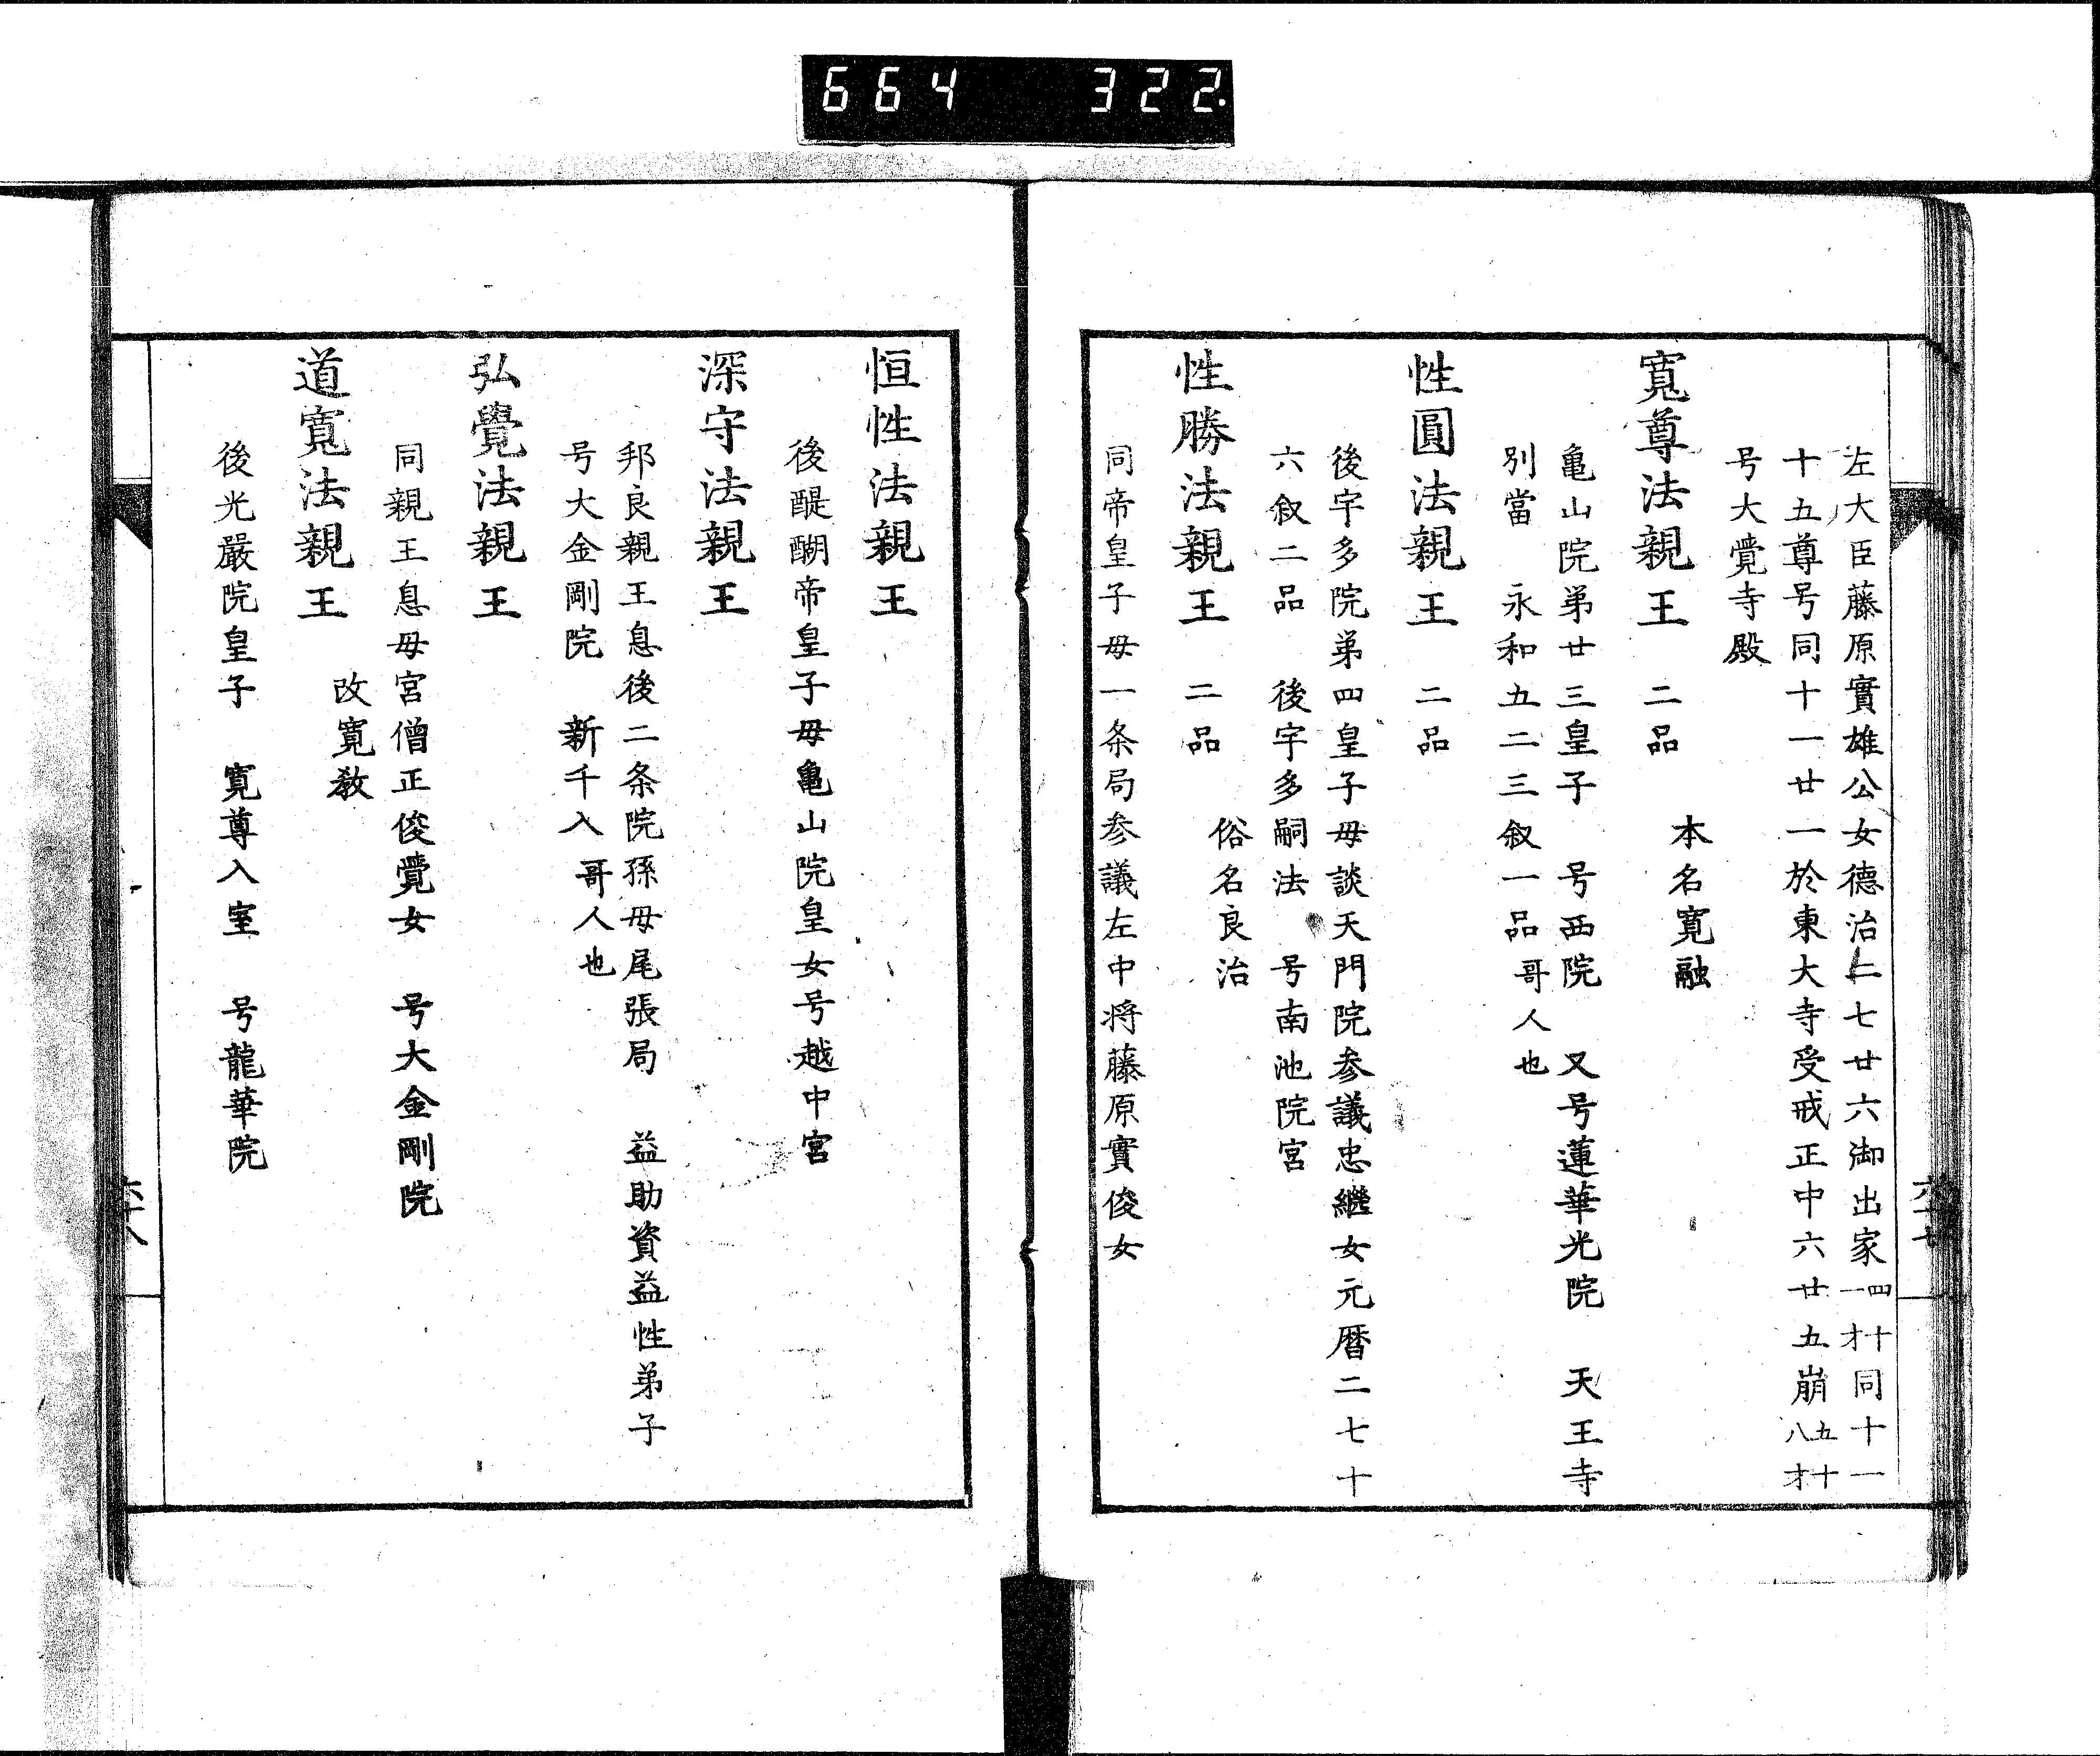 664 322
左大臣藤原實雄公女德治二七廿六御出家四十一才同十一
十五尊号同十一廿一於東大寺受戒正中六廿五崩五十八才
号大覺寺殿
寬尊法親王 二品 本名寬融
亀山院弟廿三皇子 号西院 又号蓮華光院 天王寺
別當 永和五二三叙一品哥人也
性圓法親王 二品
後宇多院弟四皇子母談天門院参議忠繼女元曆二七十
六叙二品 後宇多嗣法 号南池院宮
性勝法親王 二品 俗名良治
同帝皇子母一条局参議左中将藤原實俊女
六十七
恒性法親王
後醍醐帝皇子母亀山院皇女号越中宮
深守法親王
邦良親王息後二条院孫母尾張局 益助資益性弟子
号大金剛院 新千入哥人也
弘覺法親王
同親王息母宮僧正俊覺女 号大金剛院
道寬法親王 改寬教
後光嚴院皇子 寬尊入室 号龍華院
六十八